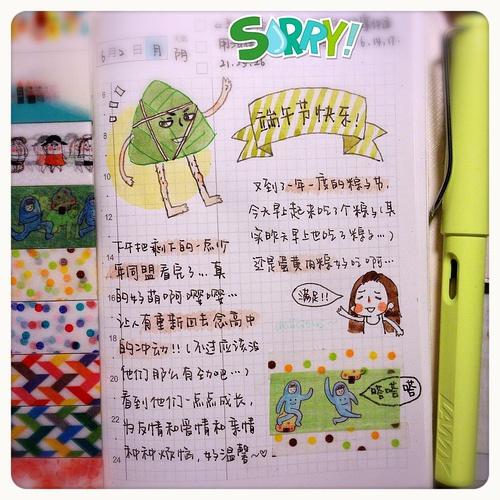 SORRY!
6月2日 月 阴
6.14.17.
21.23.26
端午节快乐!
又到了一年一度的粽子节,
今天早上起来吃了个粽子(其
实昨天早上也吃了来着...)
还是蛋黄肉粽好吃啊...
满足!!
下午把剩下的一点少
年同盟看完了...真
的好萌啊嘤嘤...
让人有重新回去念高中
的冲动!!(不过应该没
他们那么有劲吧...)
看到他们一点点成长,
归与情和爱情和亲情
种种烦恼,好温馨~♡
嗒嗒嗒
8
10
12
14
16
18
20
22
24